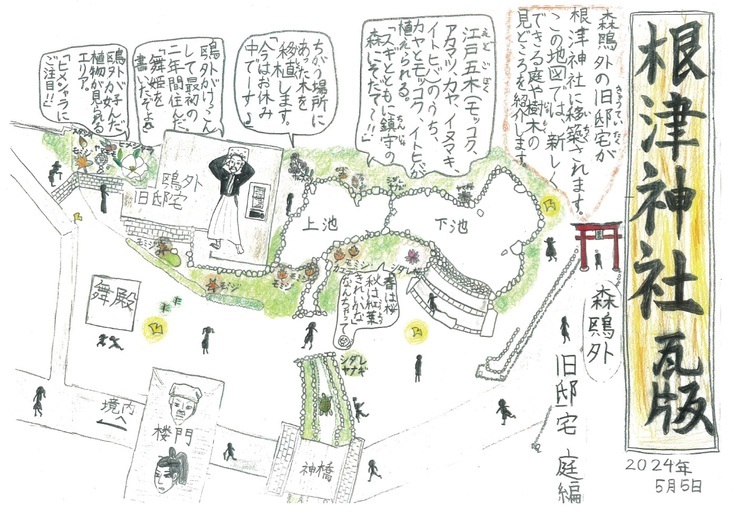 根津神社瓦版
2024年
5月5日
森鴎外
旧邸宅 庭編
森鴎外の旧邸宅が
きゅうていたく
根津神社に移築されます。
この地図では、新しく
できる庭や樹木の
見どころを紹介します。
江戸五木(モッコク、
アカマツ、カヤ、イヌマキ、
イトヒバ)のうち、
カヤとモッコク、イトヒバが
植えられる。
「スギとともに鎮守の
森にそだて〜!!」
ちがう場所に
あった木を
移植します。
「今はお休み
中でーす」
鴎外がけっこん
して最初の
二年間住んだ。
「舞姫を
書いたぞよ」
鴎外が好んだ
植物が見られる
エリア。
「ヒメシャラに
ご注目!!」
ヒメシャラ
モミジ
鴎外
旧邸宅
上池
下池
モミジ
モミジ
モミジ
春は桜
秋は紅葉
きれいかな
なんちゃって
シダレ
ヤナギ
舞殿
境内へ
楼門
神橋